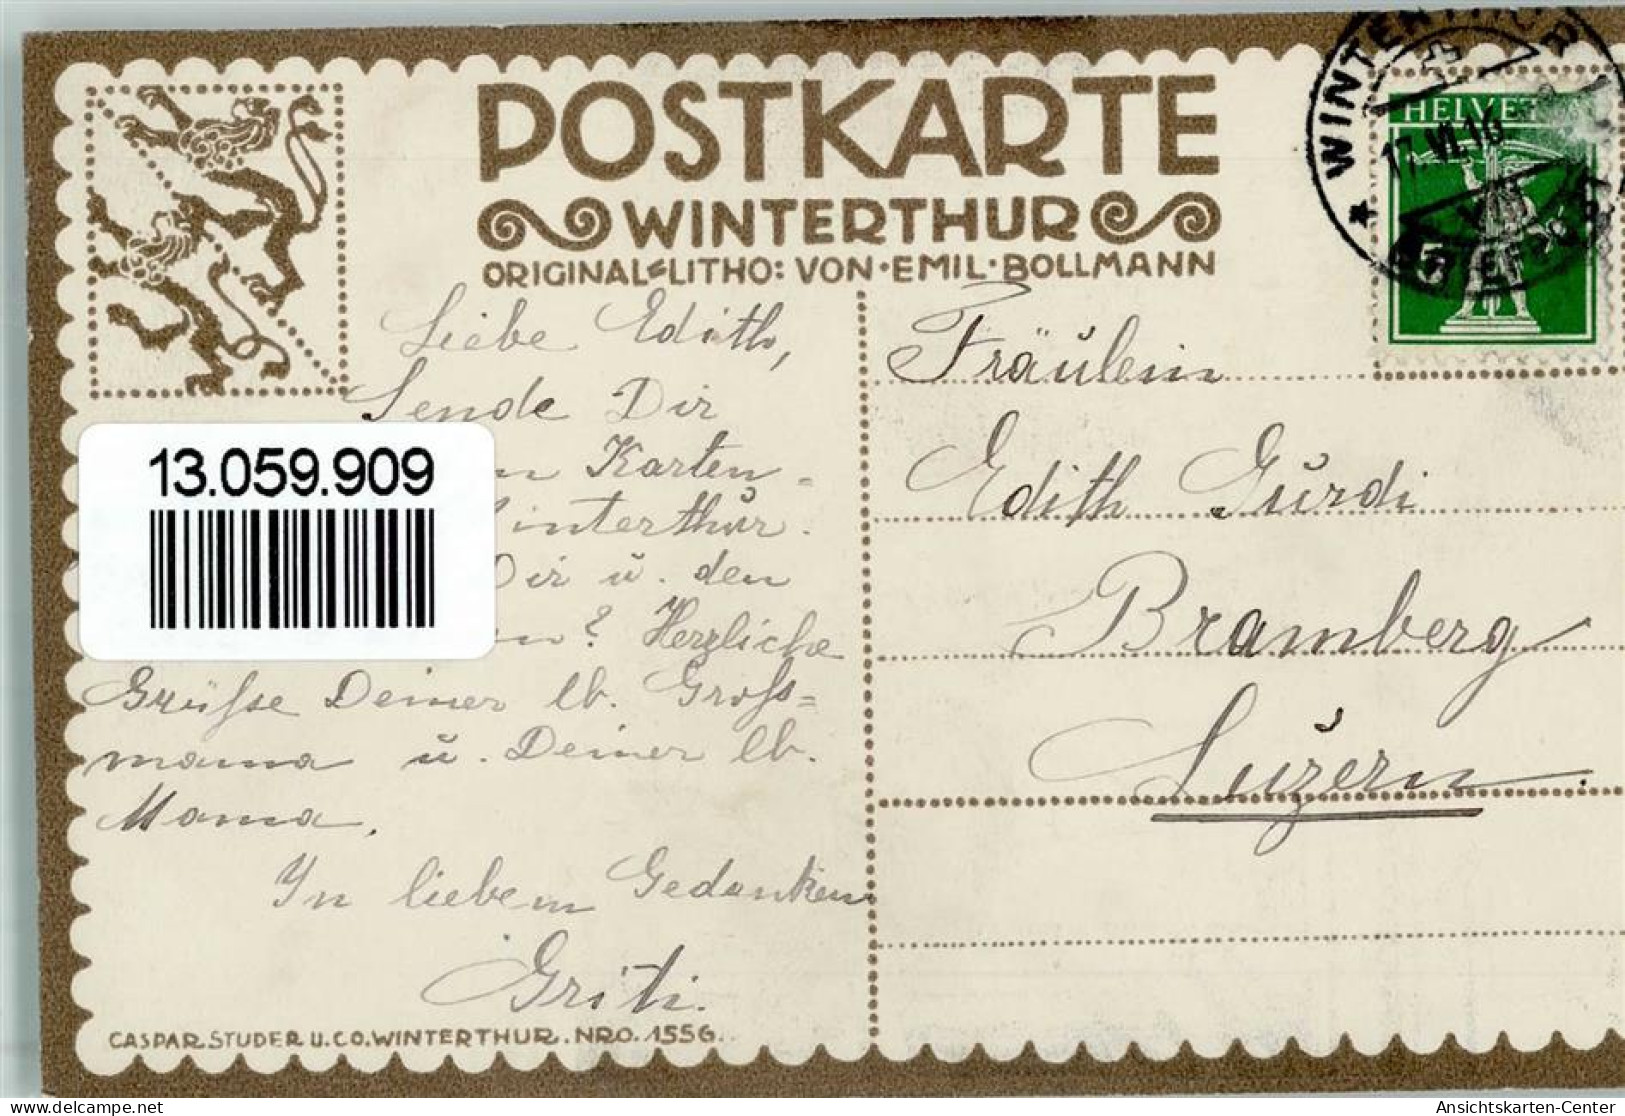 POSTKARTE
WINTERTHUR
ORIGINAL=LITHO: VON·EMIL·BOLLMANN
WINTERTHUR
17.VI.16
BRIEF
HELVETIA
5
Liebe Edith,
Sende Dir
Karten=
interthur.
Dir u. den
? Herzliche
Grüsse Deiner lb. Gross=
mama u. Deiner lb.
Mama.
In liebem Gedenken
Griti.
Fräulein
Edith Gurdi
Bramberg
Luzern.
13.059.909
CASPAR STUDER U. CO. WINTERTHUR. NRO. 1556.
Ansichtskarten-Center